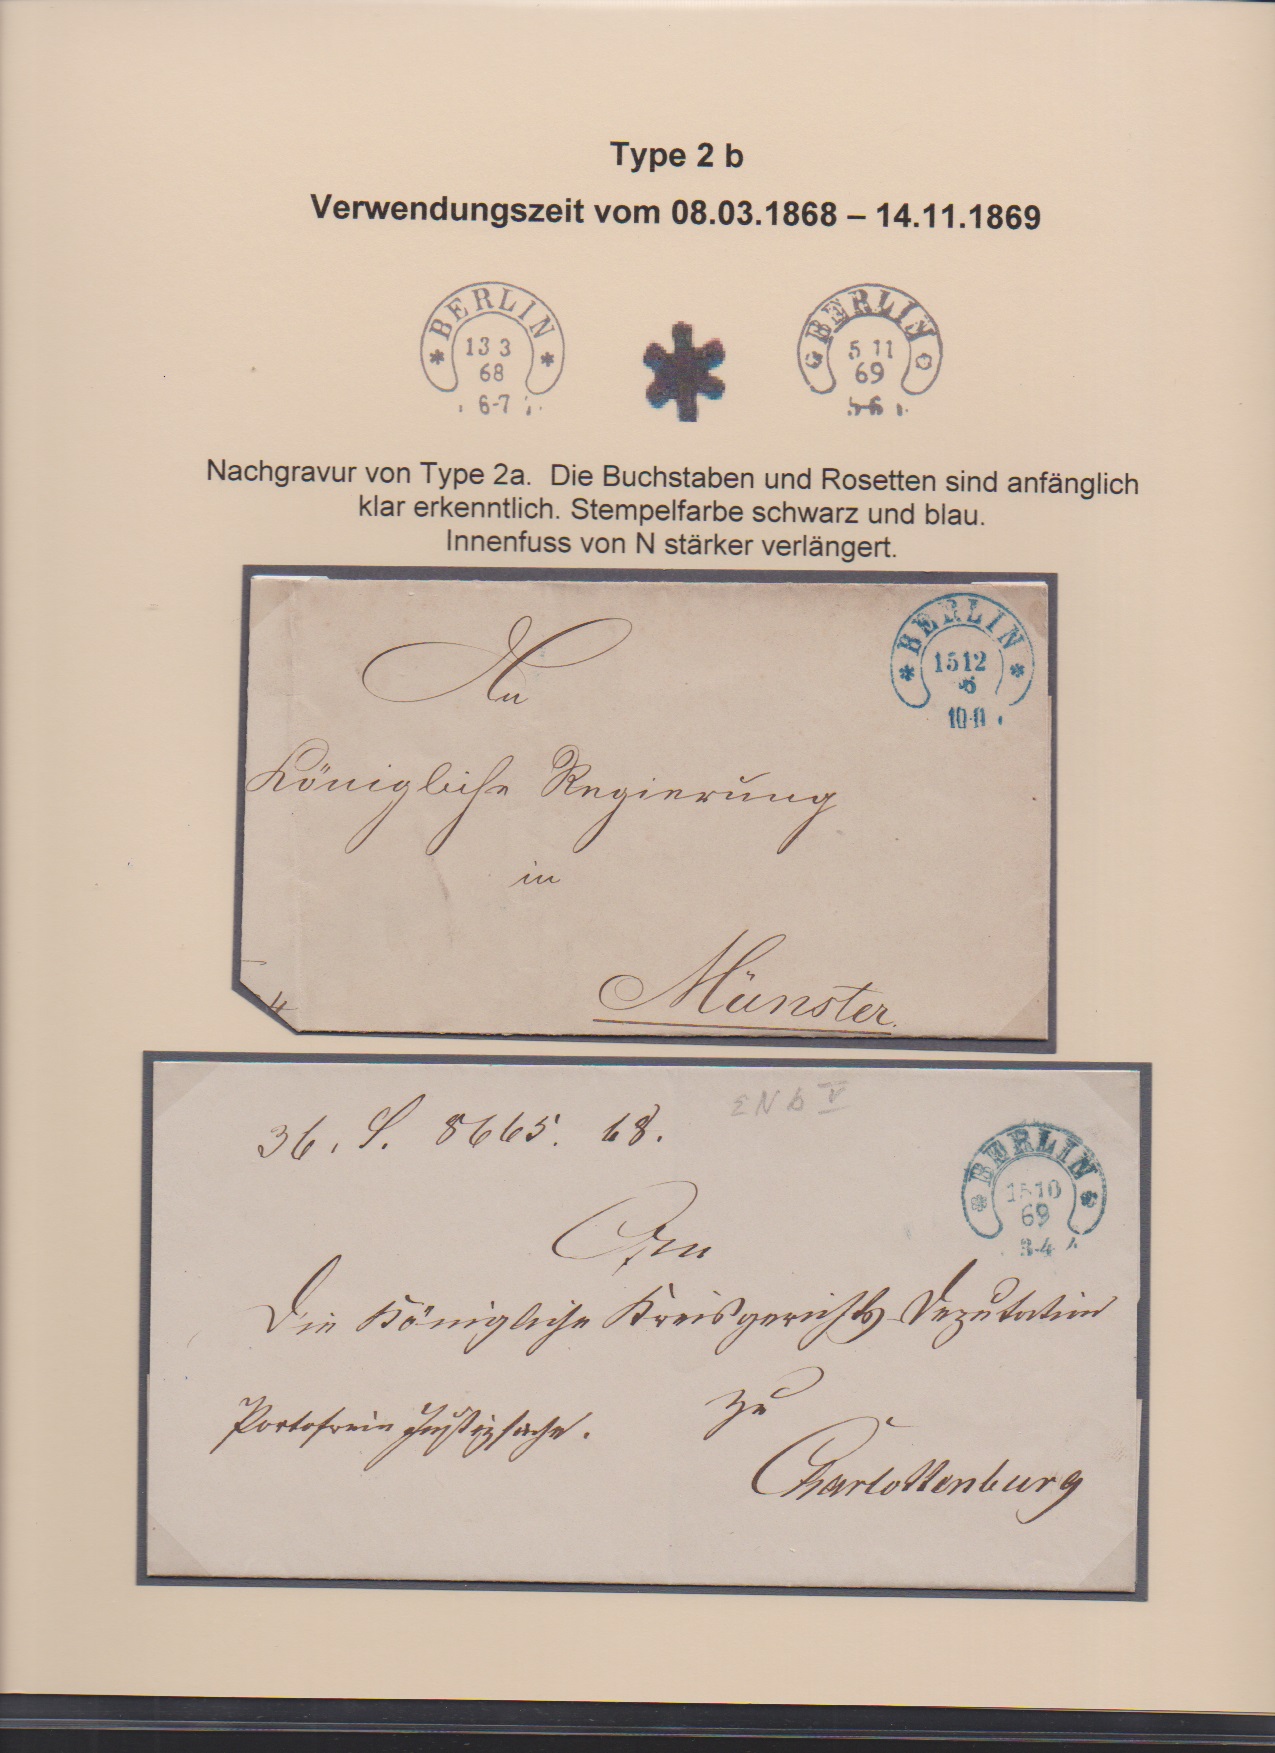 Type 2 b
Verwendungszeit vom 08.03.1868 – 14.11.1869
* BERLIN *
13 3
68
6-7
BERLIN
5 11
69
5-6
Nachgravur von Type 2a. Die Buchstaben und Rosetten sind anfänglich
klar erkenntlich. Stempelfarbe schwarz und blau.
Innenfuss von N stärker verlängert.
* BERLIN *
15 12
An
Königliche Regierung
in
Münster.
4
36. S. 8665. 68.
* BERLIN *
15 10
69
3-4
An
Die Königliche Kreisgerichts Deputation
zu
Portofreie Justizsache.
Charlottenburg